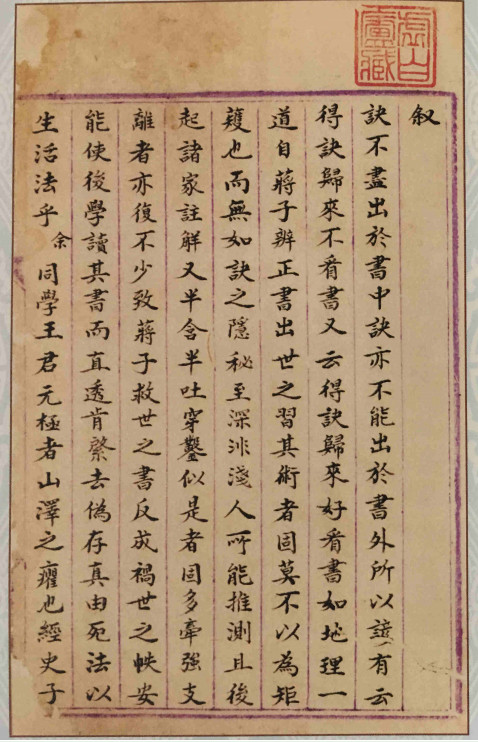 虛白廬藏
叙
訣不盡出於書中訣亦不能出於書外所以諺有云
得訣歸來不看書又云得訣歸來好看書如地理一
道自蔣子辨正書出世之習其術者固莫不以為矩
矱也而無如訣之隱秘至深非淺人所能推測且後
起諸家註觧又半含半吐穿鑿似是者固多牽強支
離者亦復不少致蔣子救世之書反成禍世之帙安
能使後學讀其書而直透肯綮去偽存真由死法以
生活法乎余同學王君元極者山澤之癯也經史子